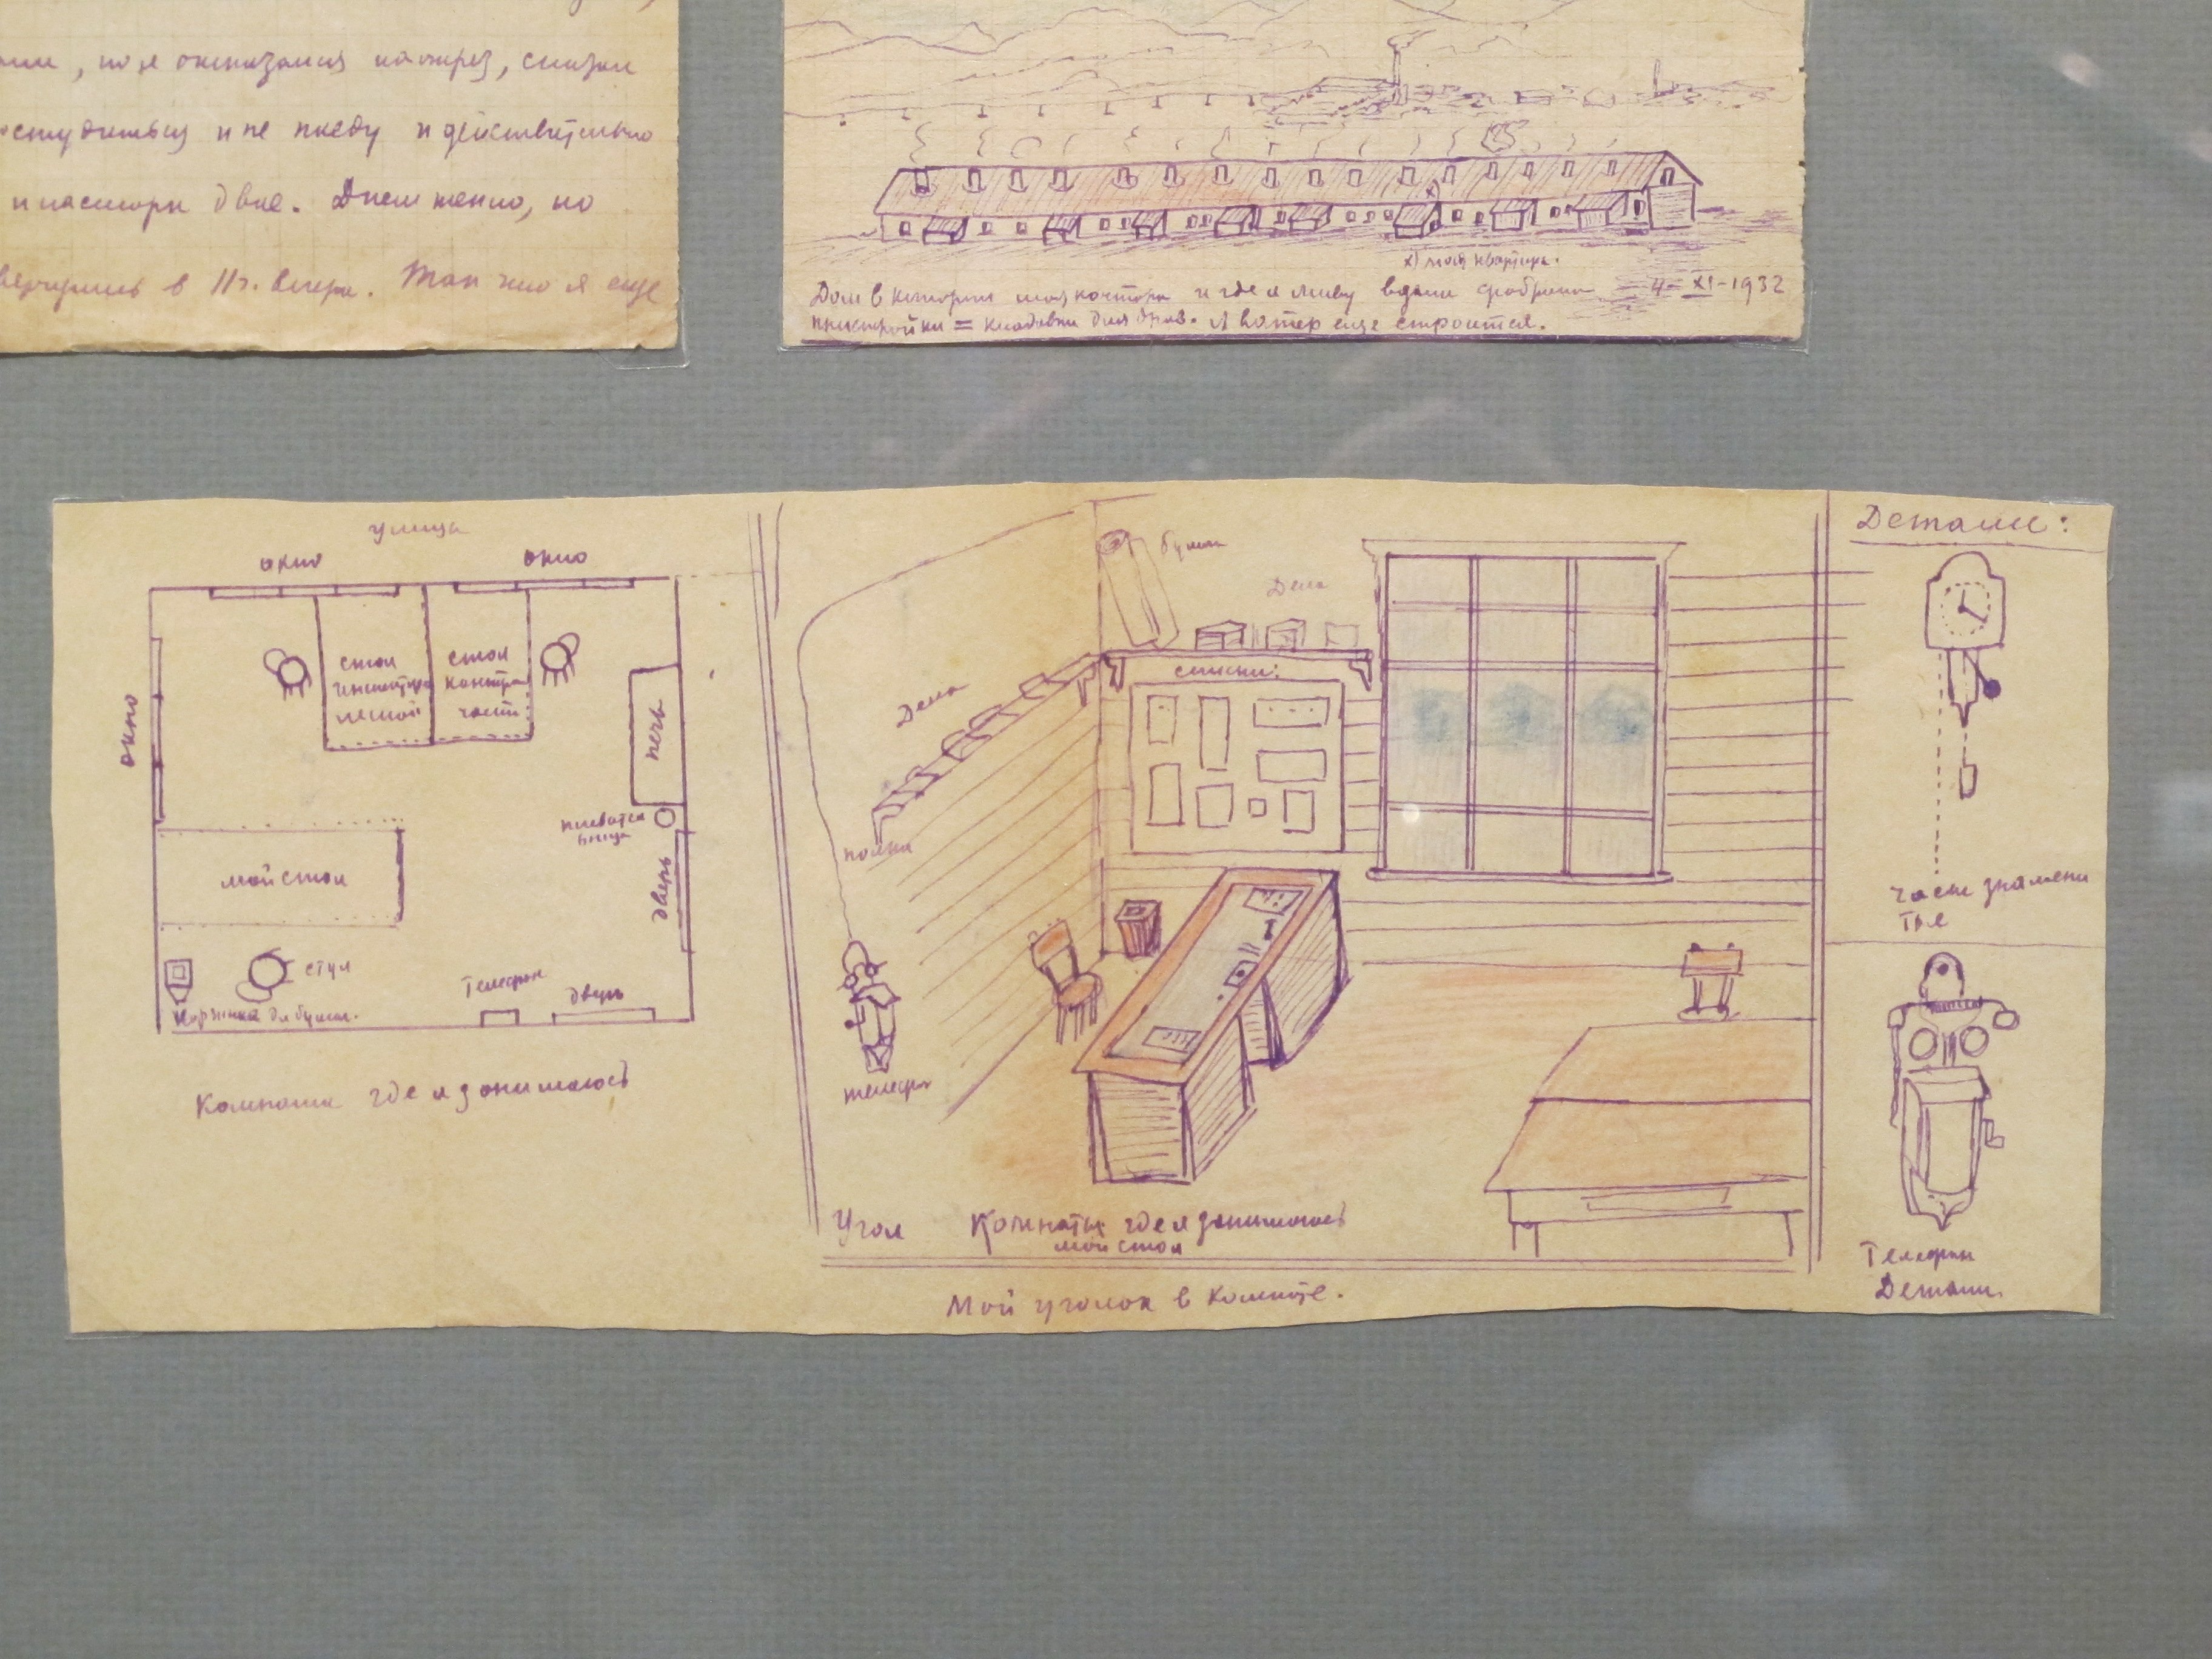 , но я отказался наотрез, сказал
и не поеду и действительно
двое. Днем тепло, но
в 11 ч. вечера. Так что я еще
х) моя квартира.
Дом в котором моя контора и где я живу вдали фабрика 4-XI-1932
пристройки = кладовки для дров. А ватер еще строится.
улица
окно
окно
окно
стол
стол
контр
части
печь
плевательница
дверь
мой стол
стул
Телефон
дверь
Корзинка для бумаг.
Комната где я занимаюсь
бумага
Дела
Дела
списки:
полка
телефон
Угол Комнаты где я занимаюсь
мой стол
Мой уголок в комнате.
Детали:
Часы знамени
тые
Телефон
Детали.